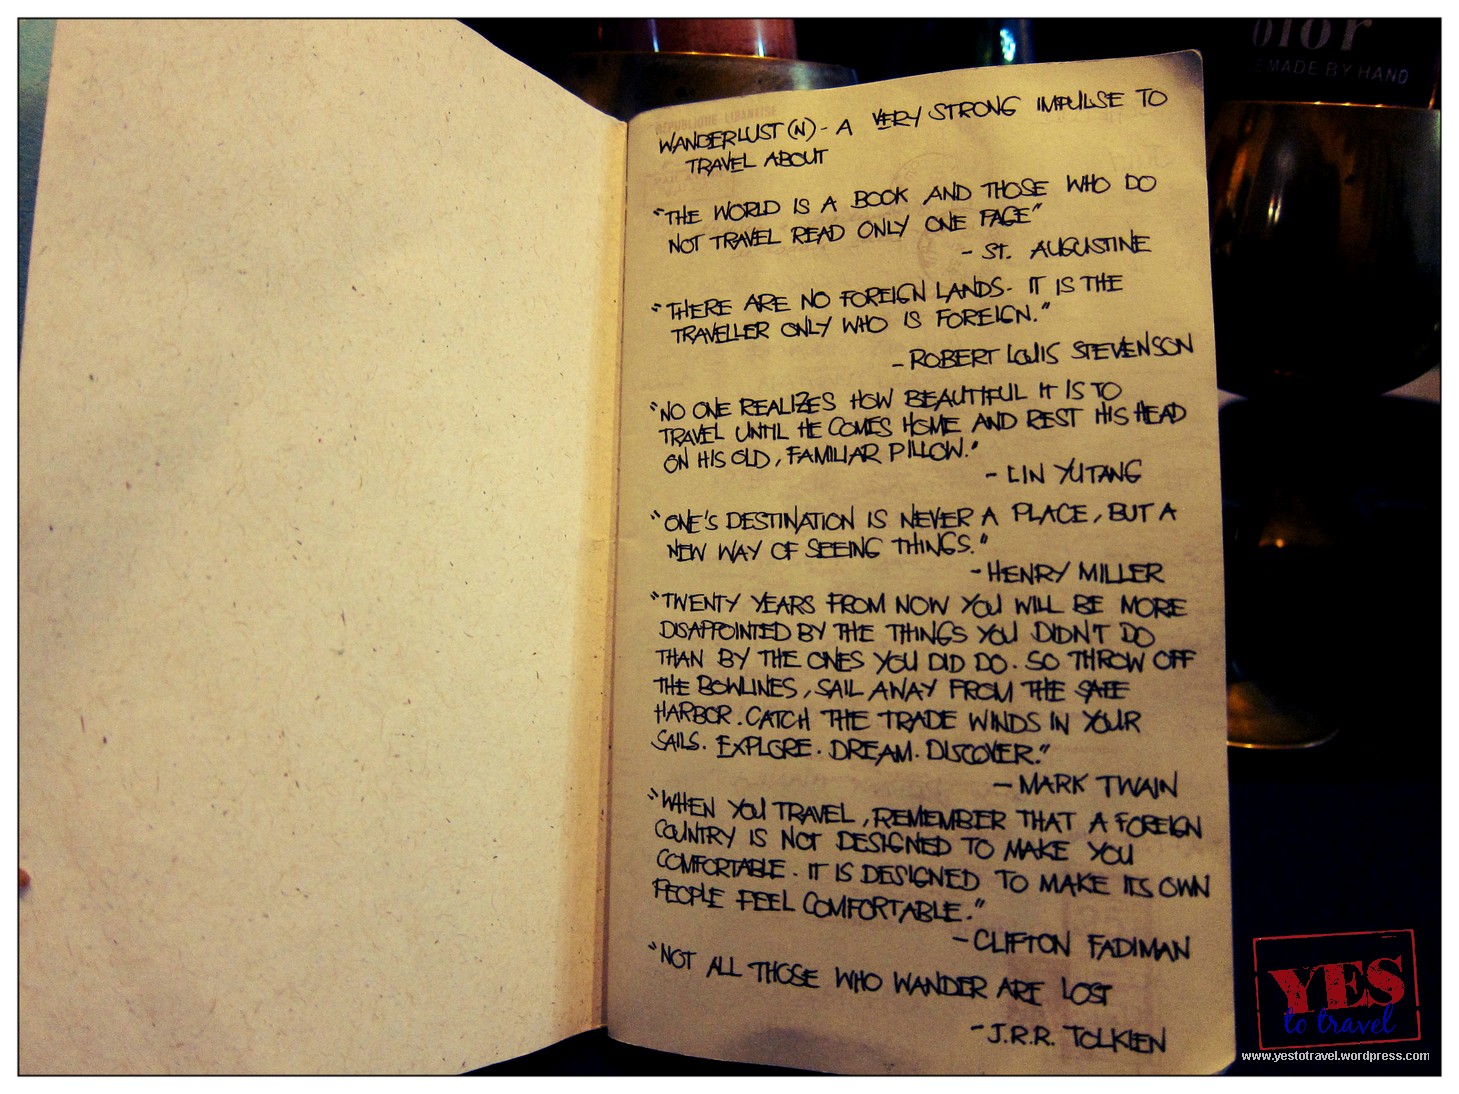 WANDERLUST (N) - A VERY STRONG IMPULSE TO
TRAVEL ABOUT
"THE WORLD IS A BOOK AND THOSE WHO DO
NOT TRAVEL READ ONLY ONE PAGE"
- ST. AUGUSTINE
"THERE ARE NO FOREIGN LANDS. IT IS THE
TRAVELLER ONLY WHO IS FOREIGN."
- ROBERT LOUIS STEVENSON
"NO ONE REALIZES HOW BEAUTIFUL IT IS TO
TRAVEL UNTIL HE COMES HOME AND REST HIS HEAD
ON HIS OLD, FAMILIAR PILLOW."
- LIN YUTANG
"ONE'S DESTINATION IS NEVER A PLACE, BUT A
NEW WAY OF SEEING THINGS."
- HENRY MILLER
"TWENTY YEARS FROM NOW YOU WILL BE MORE
DISAPPOINTED BY THE THINGS YOU DIDN'T DO
THAN BY THE ONES YOU DID DO. SO THROW OFF
THE BOWLINES, SAIL AWAY FROM THE SAFE
HARBOR. CATCH THE TRADE WINDS IN YOUR
SAILS. EXPLORE. DREAM. DISCOVER."
- MARK TWAIN
"WHEN YOU TRAVEL, REMEMBER THAT A FOREIGN
COUNTRY IS NOT DESIGNED TO MAKE YOU
COMFORTABLE. IT IS DESIGNED TO MAKE ITS OWN
PEOPLE FEEL COMFORTABLE."
- CLIFTON FADIMAN
"NOT ALL THOSE WHO WANDER ARE LOST
- J.R.R. TOLKIEN
REPUBLIQUE LIBANAISE
MADE BY HAND
YES
to travel
www.yestotravel.wordpress.com